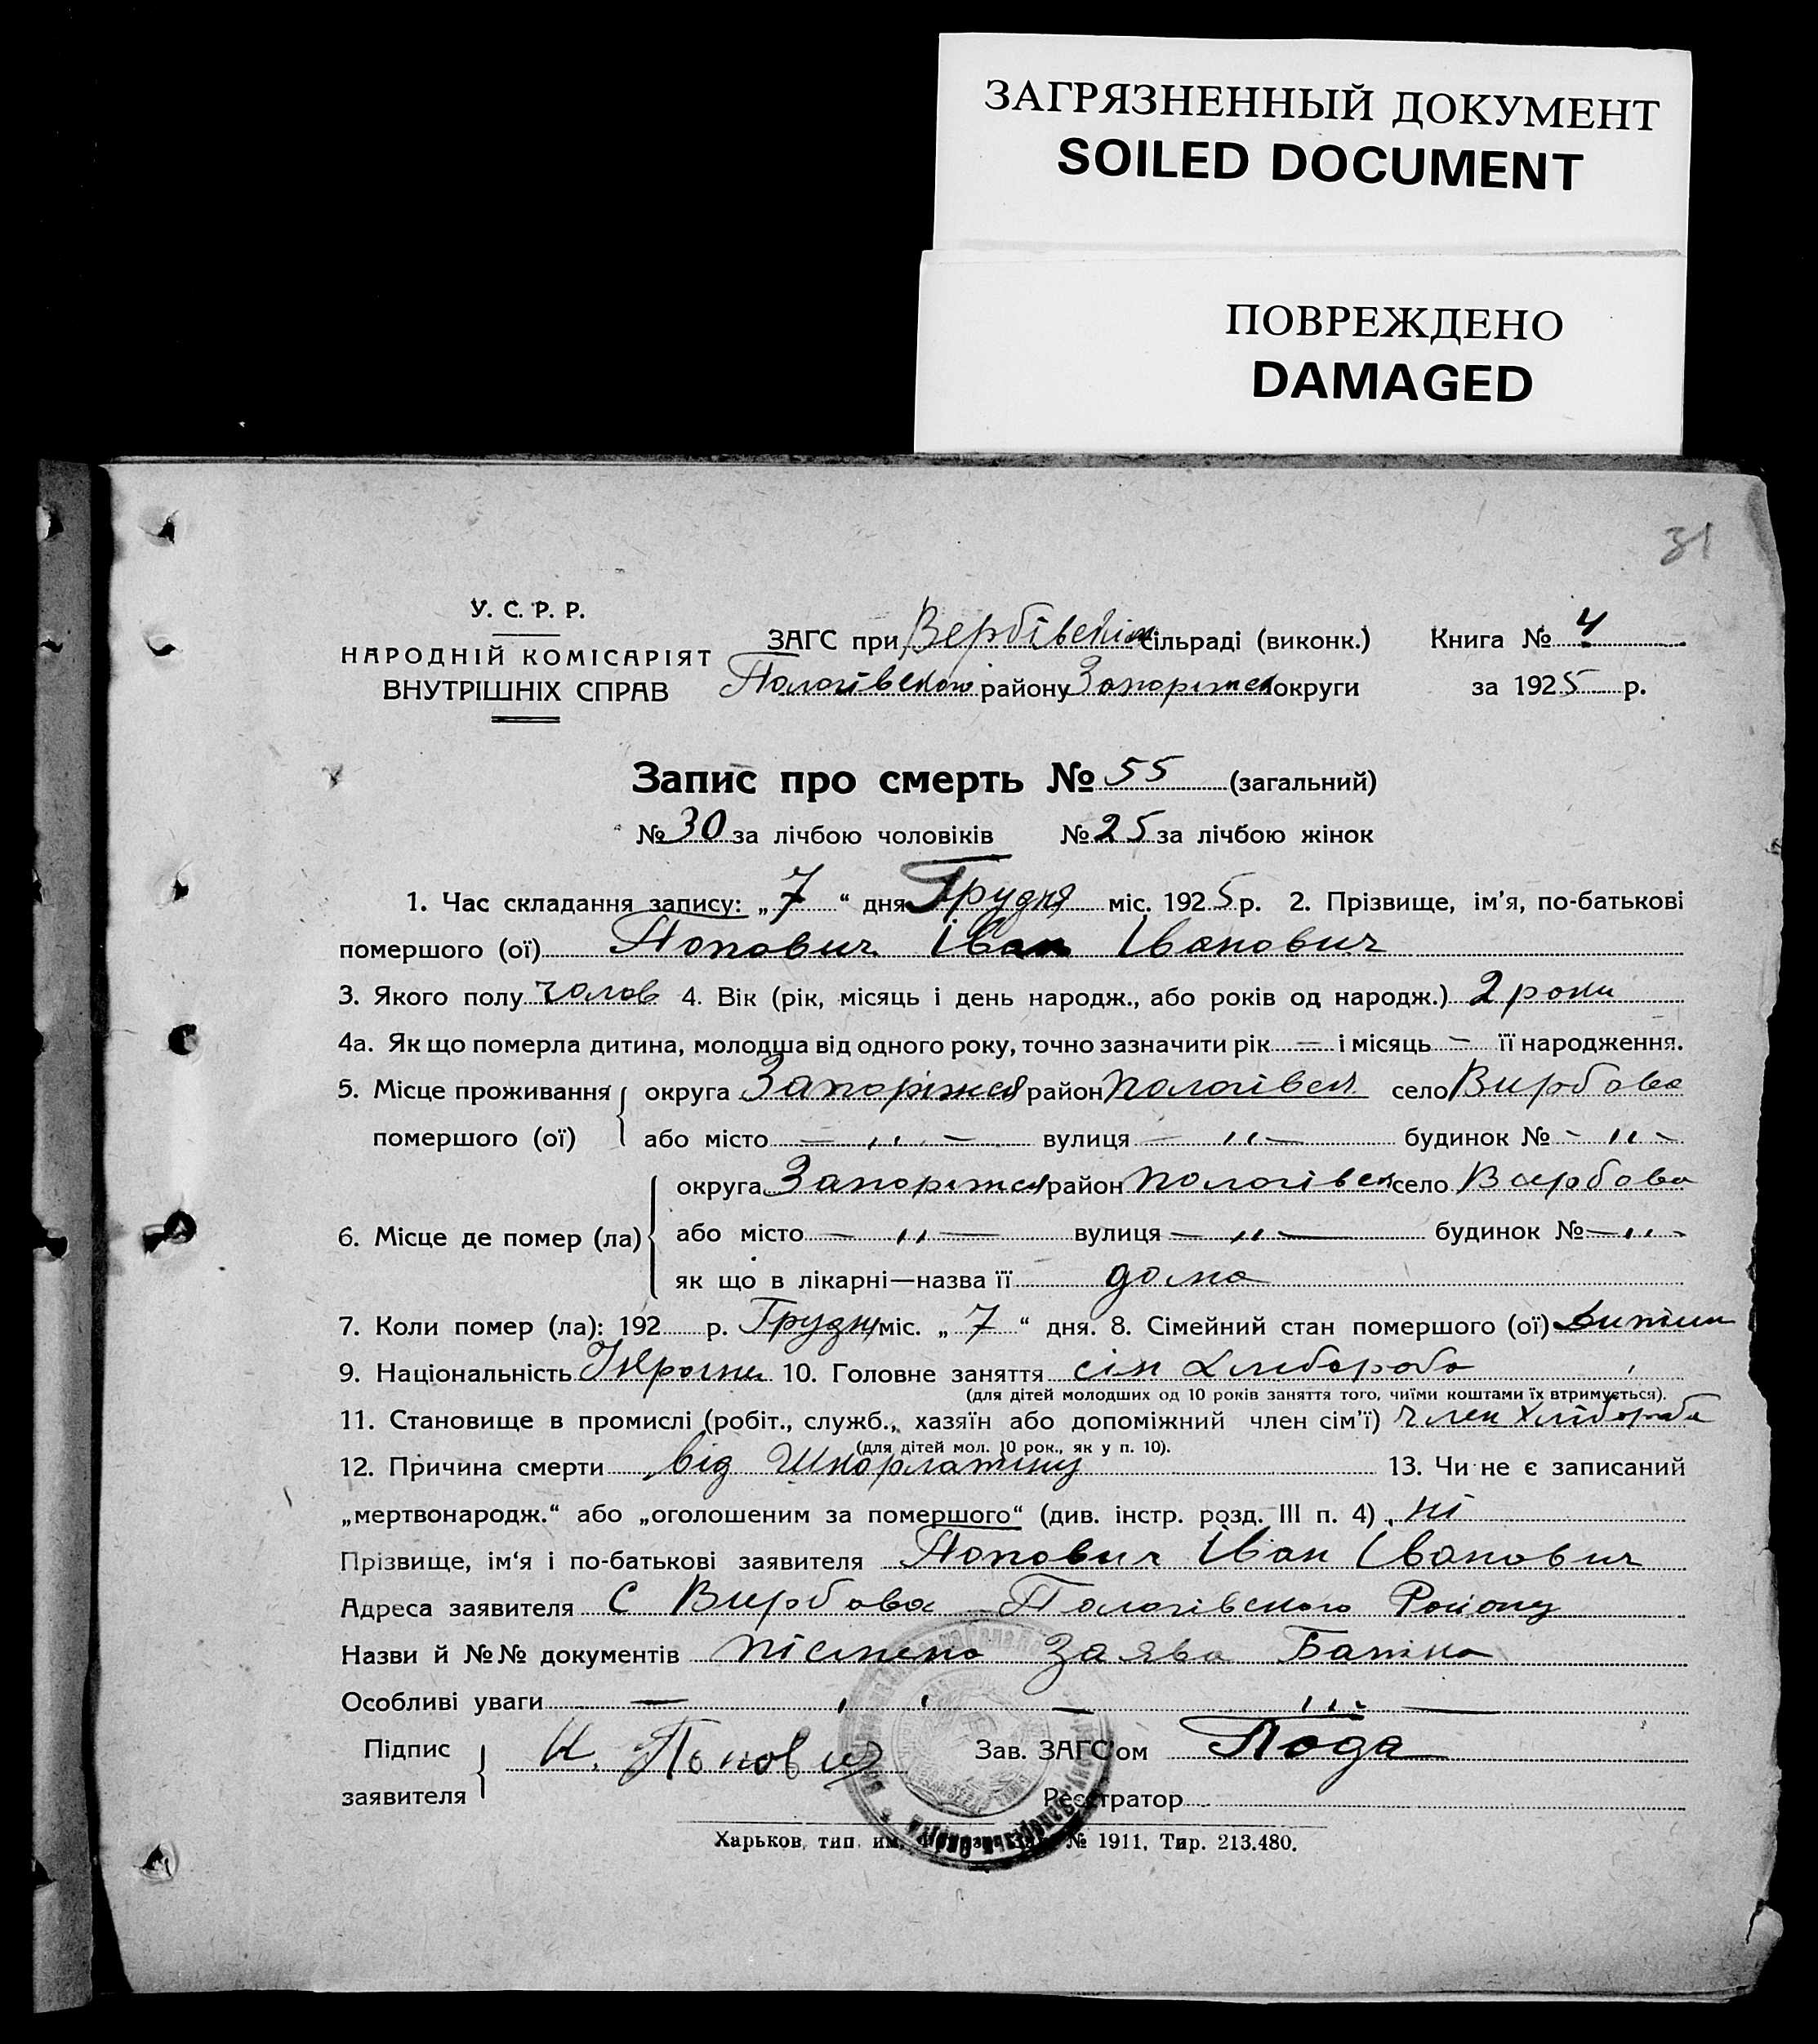 ЗАГРЯЗНЕННЫЙ ДОКУМЕНТ
SOILED DOCUMENT
ПОВРЕЖДЕНО
DAMAGED
31
У. С. Р. Р.
НАРОДНІЙ КОМІСАРІЯТ
ВНУТРІШНІХ СПРАВ
ЗАГС при Вербівскім сільраді (виконк.) Книга № 4
Пологівского району Запоріжск округи за 1925 р.
Запис про смерть № 55 (загальний)
№ 30 за лічбою чоловіків № 25 за лічбою жінок
1. Час складання запису: „ 7 “ дня Грудня міс. 1925 р. 2. Прізвище, ім'я, по-батькові
помершого (ої) Попович Іван Іванович
3. Якого полу чолов 4. Вік (рік, місяць і день народж., або років од народж.) 2 роки
4а. Як що померла дитина, молодша від одного року, точно зазначити рік — і місяць — її народження.
5. Місце проживання округа Запоріжся район Пологівся село Вирбова
помершого (ої) або місто — „ — вулиця — „ — будинок № — „ —
округа Запоріжся район Пологівск село Вирбова
6. Місце де помер (ла) або місто — „ — вулиця — „ — будинок № — „ —
як що в лікарні—назва її дома
7. Коли помер (ла): 192 р. Грудня міс. „ 7 “ дня. 8. Сімейний стан помершого (ої) дитина
9. Національність Украин 10. Головне заняття сін Хлибороба
(для дітей молодших од 10 років заняття того, чиїми коштами їх втримується).
11. Становище в промислі (робіт., служб., хазяїн або допоміжний член сім'ї) член хлібороба
(для дітей мол. 10 рок., як у п. 10).
12. Причина смерти від Шкорлатину 13. Чи не є записаний
„мертвонародж.“ або „оголошеним за помершого“ (див. інстр. розд. III п. 4) ні
Прізвище, ім'я і по-батькові заявителя Попович Іван Іванович
Адреса заявителя С Вирбова Пологівского Району
Назви й №№ документів пісмена Заява Батька
Особливі уваги — „ — „ —
Підпис
заявителя И. Попович Зав. ЗАГС'ом Пода
Реєстратор
Харьков, тип. им. № 1911, Тир. 213.480.